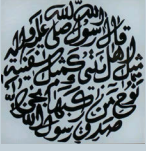 قال رسول الله صلى الله عليه وآله
مثل أهل بيتي كمثل سفينة
نوح من ركبها نجى
صدق رسول الله